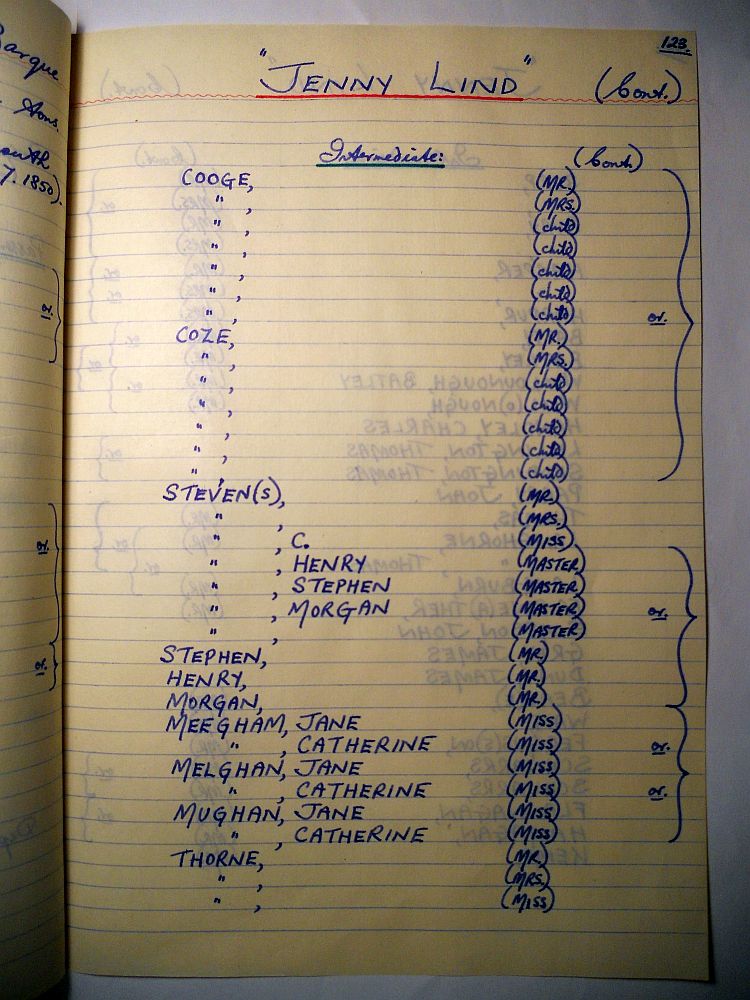 123.
"JENNY LIND" (Cont.)
Intermediate: (Cont.)
COOGE, (MR.)
" , (MRS.)
" , (child)
" , (child)
" , (child)
" , (child)
" , (child) or.
COZE, (MR.)
" , (MRS.)
" , (child)
" , (child)
" , (child)
" , (child)
" , (child)
STEVEN(S), (MR.)
" , (MRS.)
" , C. (MISS)
" , HENRY (MASTER)
" , STEPHEN (MASTER)
" , MORGAN (MASTER) or.
" , (MASTER)
STEPHEN, (MR.)
HENRY, (MR.)
MORGAN, (MR.)
MEEGHAM, JANE (MISS)
" , CATHERINE (MISS) or.
MELGHAN, JANE (MISS)
" , CATHERINE (MISS) or.
MUGHAN, JANE (MISS)
" , CATHERINE (MISS)
THORNE, (MR.)
" , (MRS.)
" , (MISS)
Barque
Sons.
7. 1850).
or.
or.
or.